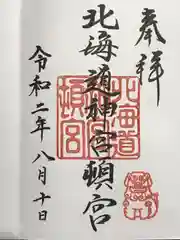 奉拝
北海道神宮頓宮
北海道
頓宮
令和二年八月十日